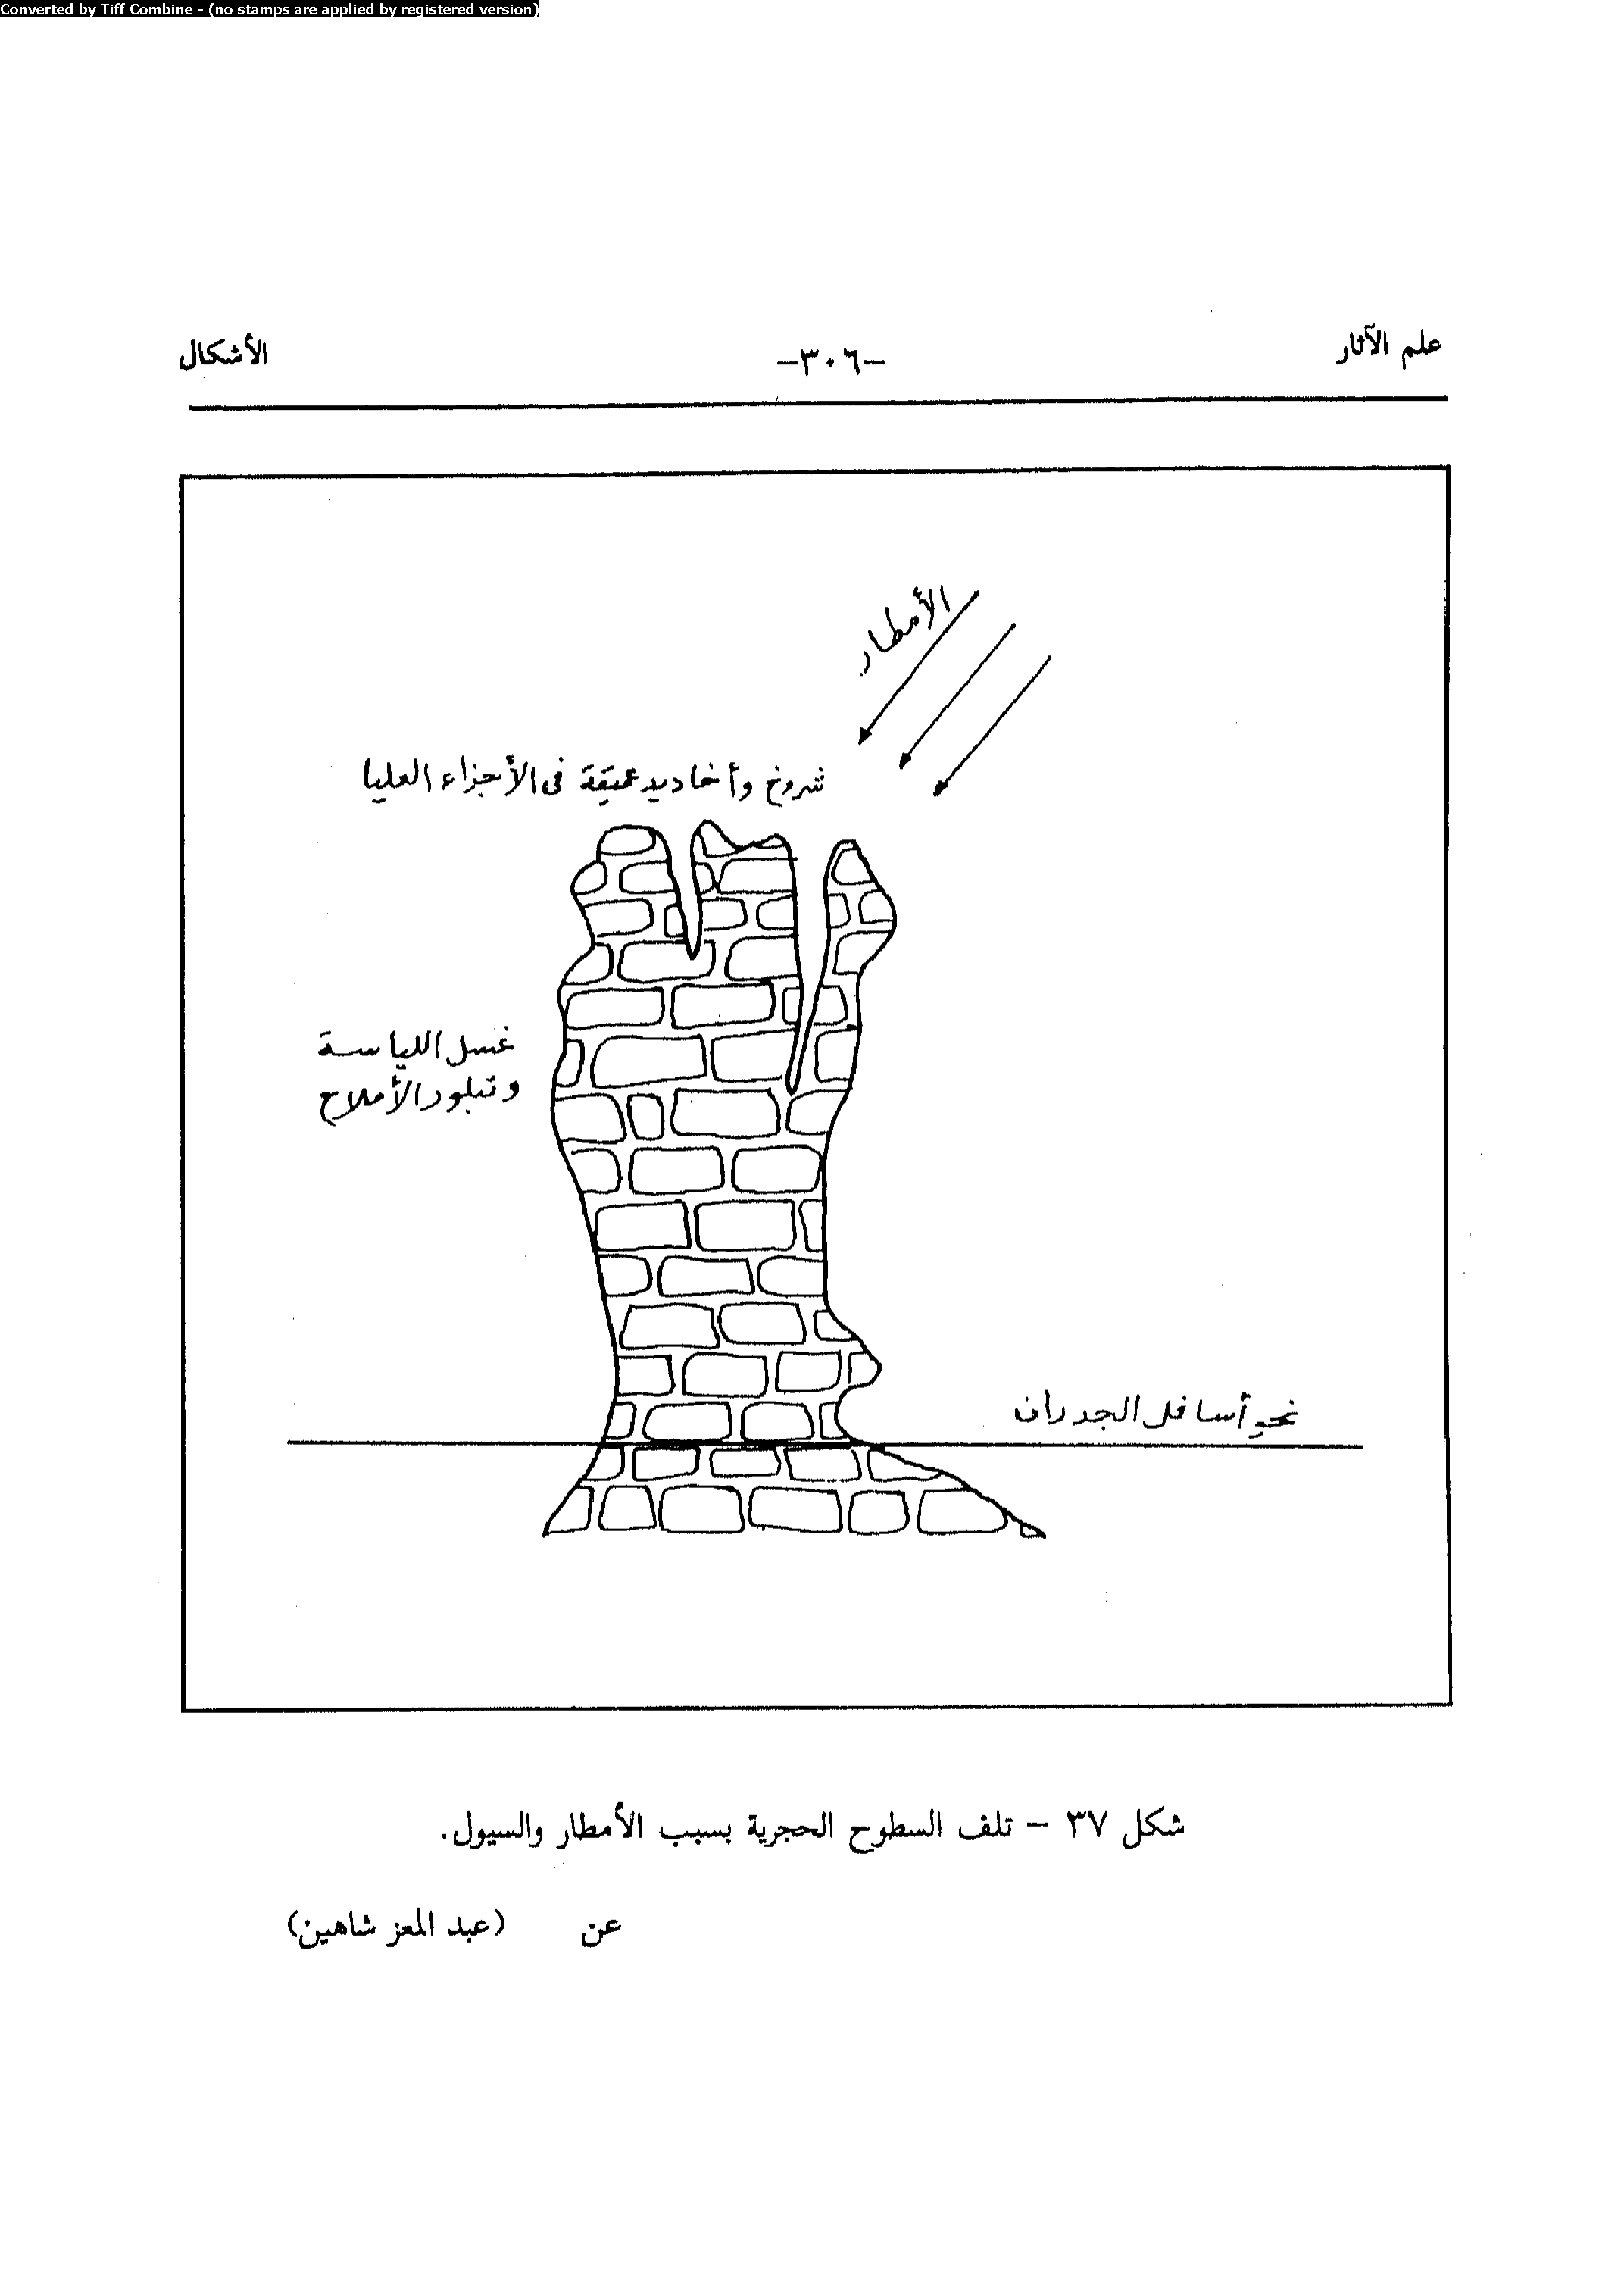 Converted by Tiff Combine - (no stamps are applied by registered version)
علم الآثار
-٣٠٦-
الأشكال
الأمطار
شروخ وأخاديد عميقة فى الأجزاء العليا
غسل اللياسة
وتبلور الأملاح
نحو أسافل الجدران
شكل ٣٧ - تلف السطوح الحجرية بسبب الأمطار والسيول.
عن (عبد المعز شاهين)